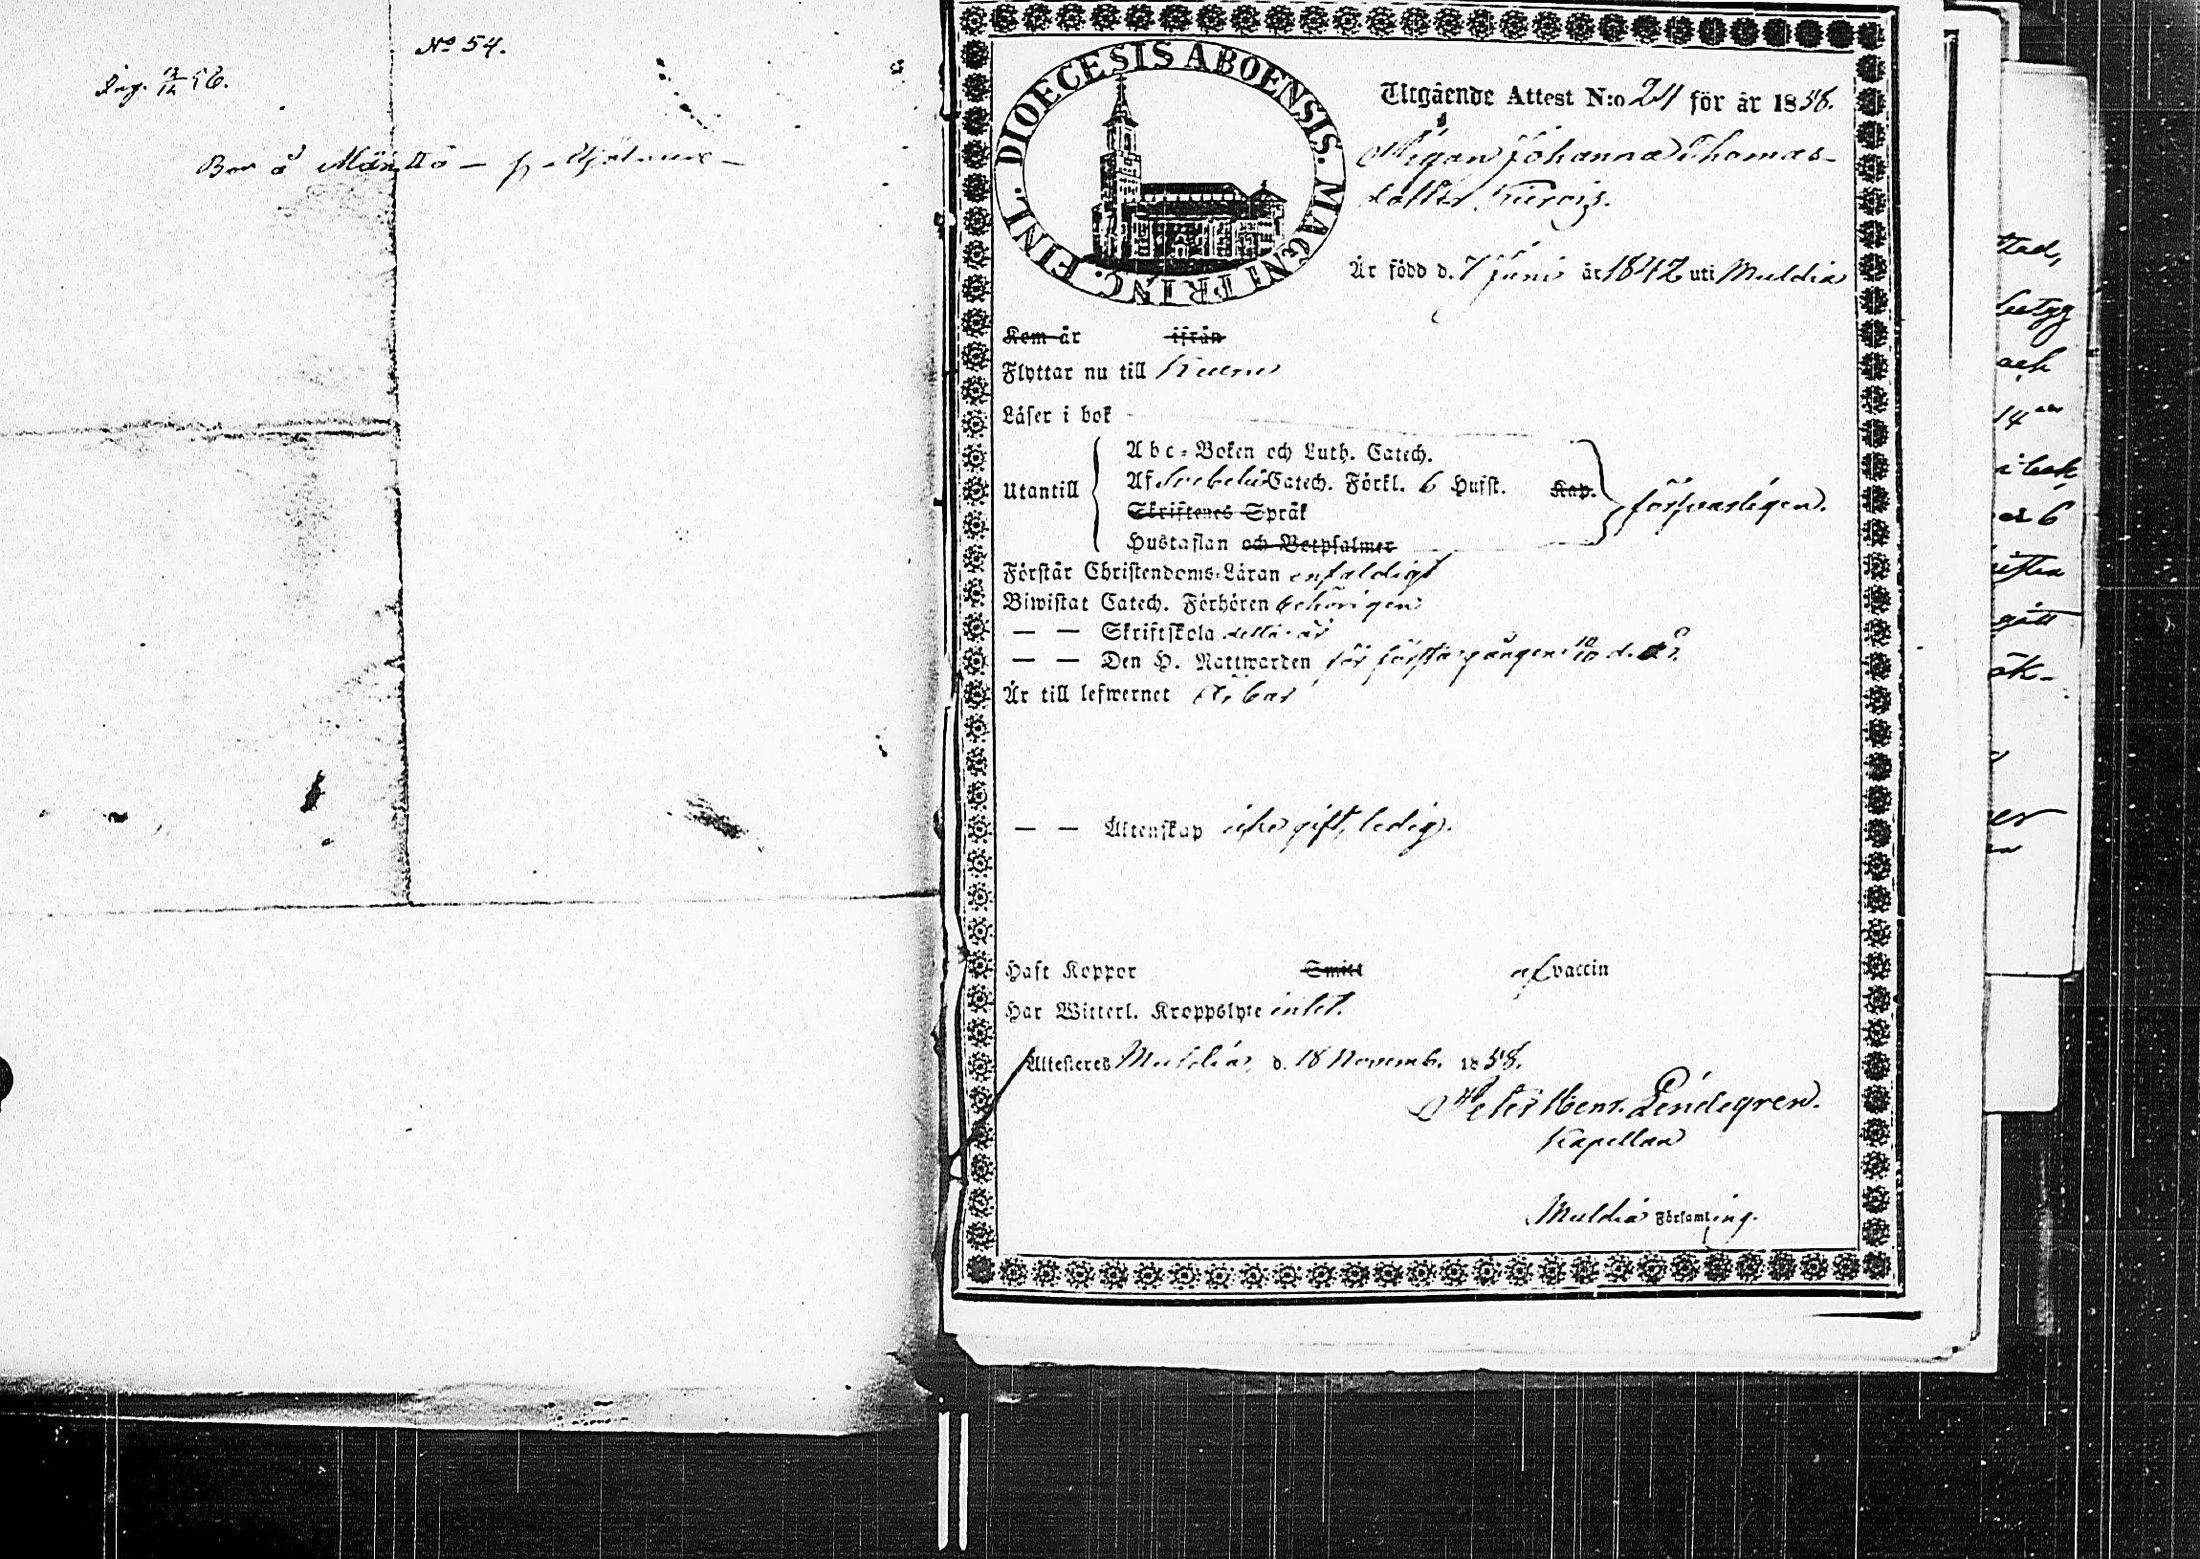 No 54.
Bor å Mänttä —
DIOECESIS ABOENSIS. MAGNI PRINC. FINL.
Utgående Attest N:o 24 för år 1858.
Pigan Johanna Thomas-
dotter
Är född d. 7 Juni år 1842 uti Muldia
Kom år ifrån
Flyttar nu till
Läser i bok
Abc-Boken och Luth. Catech.
Utantill Af Svebelii Catech. Förkl. 6 Hufst. Kap. försvarligen.
Skriftenes Språk
Hustaflan och Botpsalmer
Förstår Christendoms-Läran enfaldigt
Biwistat Catech. Förhören behörigen
— — Skriftskola detta år
— — Den H. Nattwarden för första gången 10/10 d. å.
Är till lefwernet ärbar
— — Äktenskap icke gift, ledig.
Haft Koppor Smitt af vaccin
Har Witterl. Kroppslyte intet.
Attesteres Muldia, d. 18 Novemb. 1858.
Peter Henr. Lindegren.
Kapellan
Muldia Församling.
stad,
betyg
och
14
i bok
6
gått